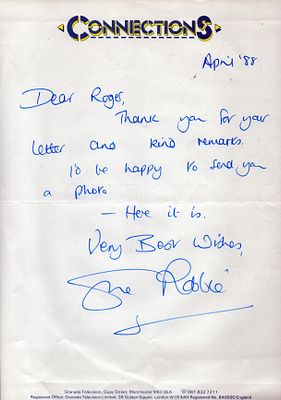 CONNECTIONS
April '88
Dear Roger,
Thank you for your
letter and kind remarks.
I'd be happy to send you
a photo
— Here it is.
Very Best Wishes,
Sue Robbie
Granada Television, Quay Street, Manchester M60 9EA ☎ 061 832 7211
Registered Office: Granada Television Limited, 36 Golden Square, London W1R 4AH Registered No. 840590 England